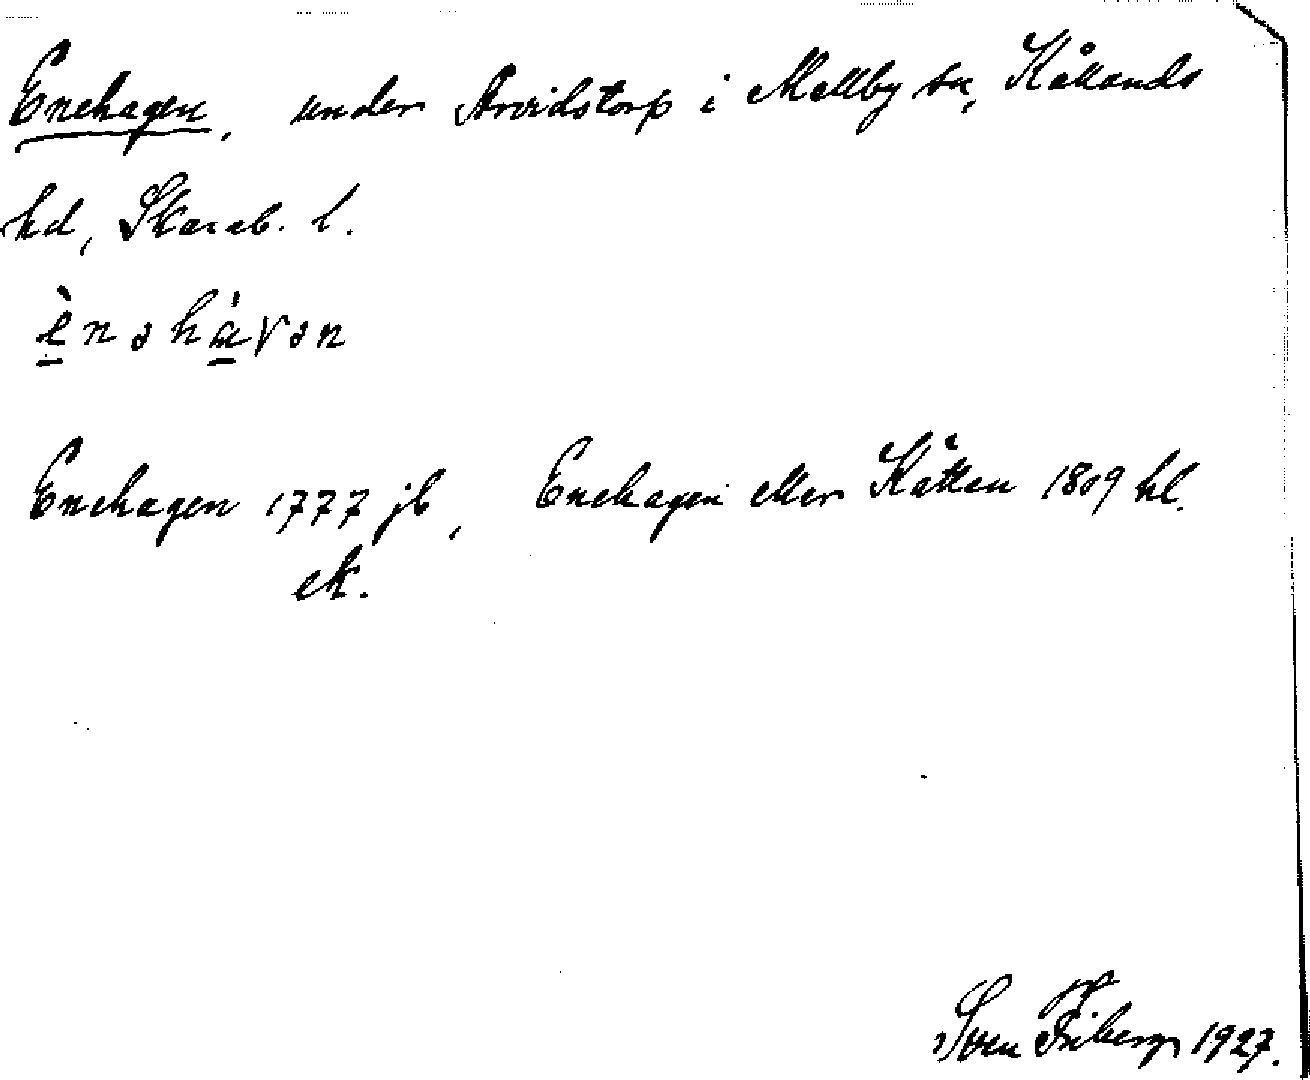 Enehagen, under Arvidstorp i Mellby sn, Kållands
hd, Skarab. l.
è̱nəhá̱γən
Enehagen 1777 jb, Enehagen eller Kåtten 1809 hl.
ek.
Sven Friberg 1927.